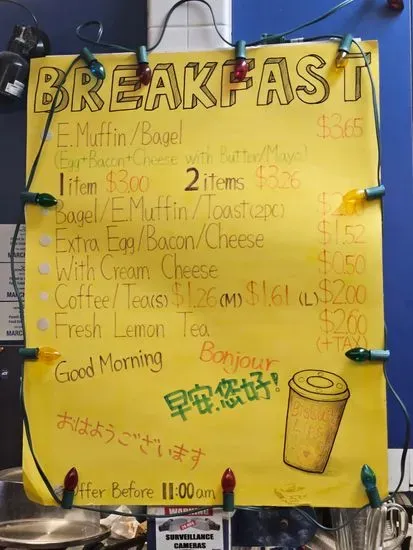 BREAKFAST
E.Muffin/Bagel $3.65
(Egg+Bacon+Cheese with Butter/Mayo)
1 item $3.00 2 items $3.26
Bagel/E.Muffin/Toast(2PC)
Extra Egg/Bacon/Cheese $1.52
With Cream Cheese $0.50
Coffee/Tea(S) $1.26 (M) $1.61 (L) $2.00
Fresh Lemon Tea $2.60
(+TAX)
Good Morning Bonjour
早安,您好!
おはようございます
Offer Before 11:00am
WARNING
SURVEILLANCE
CAMERAS
MARCH